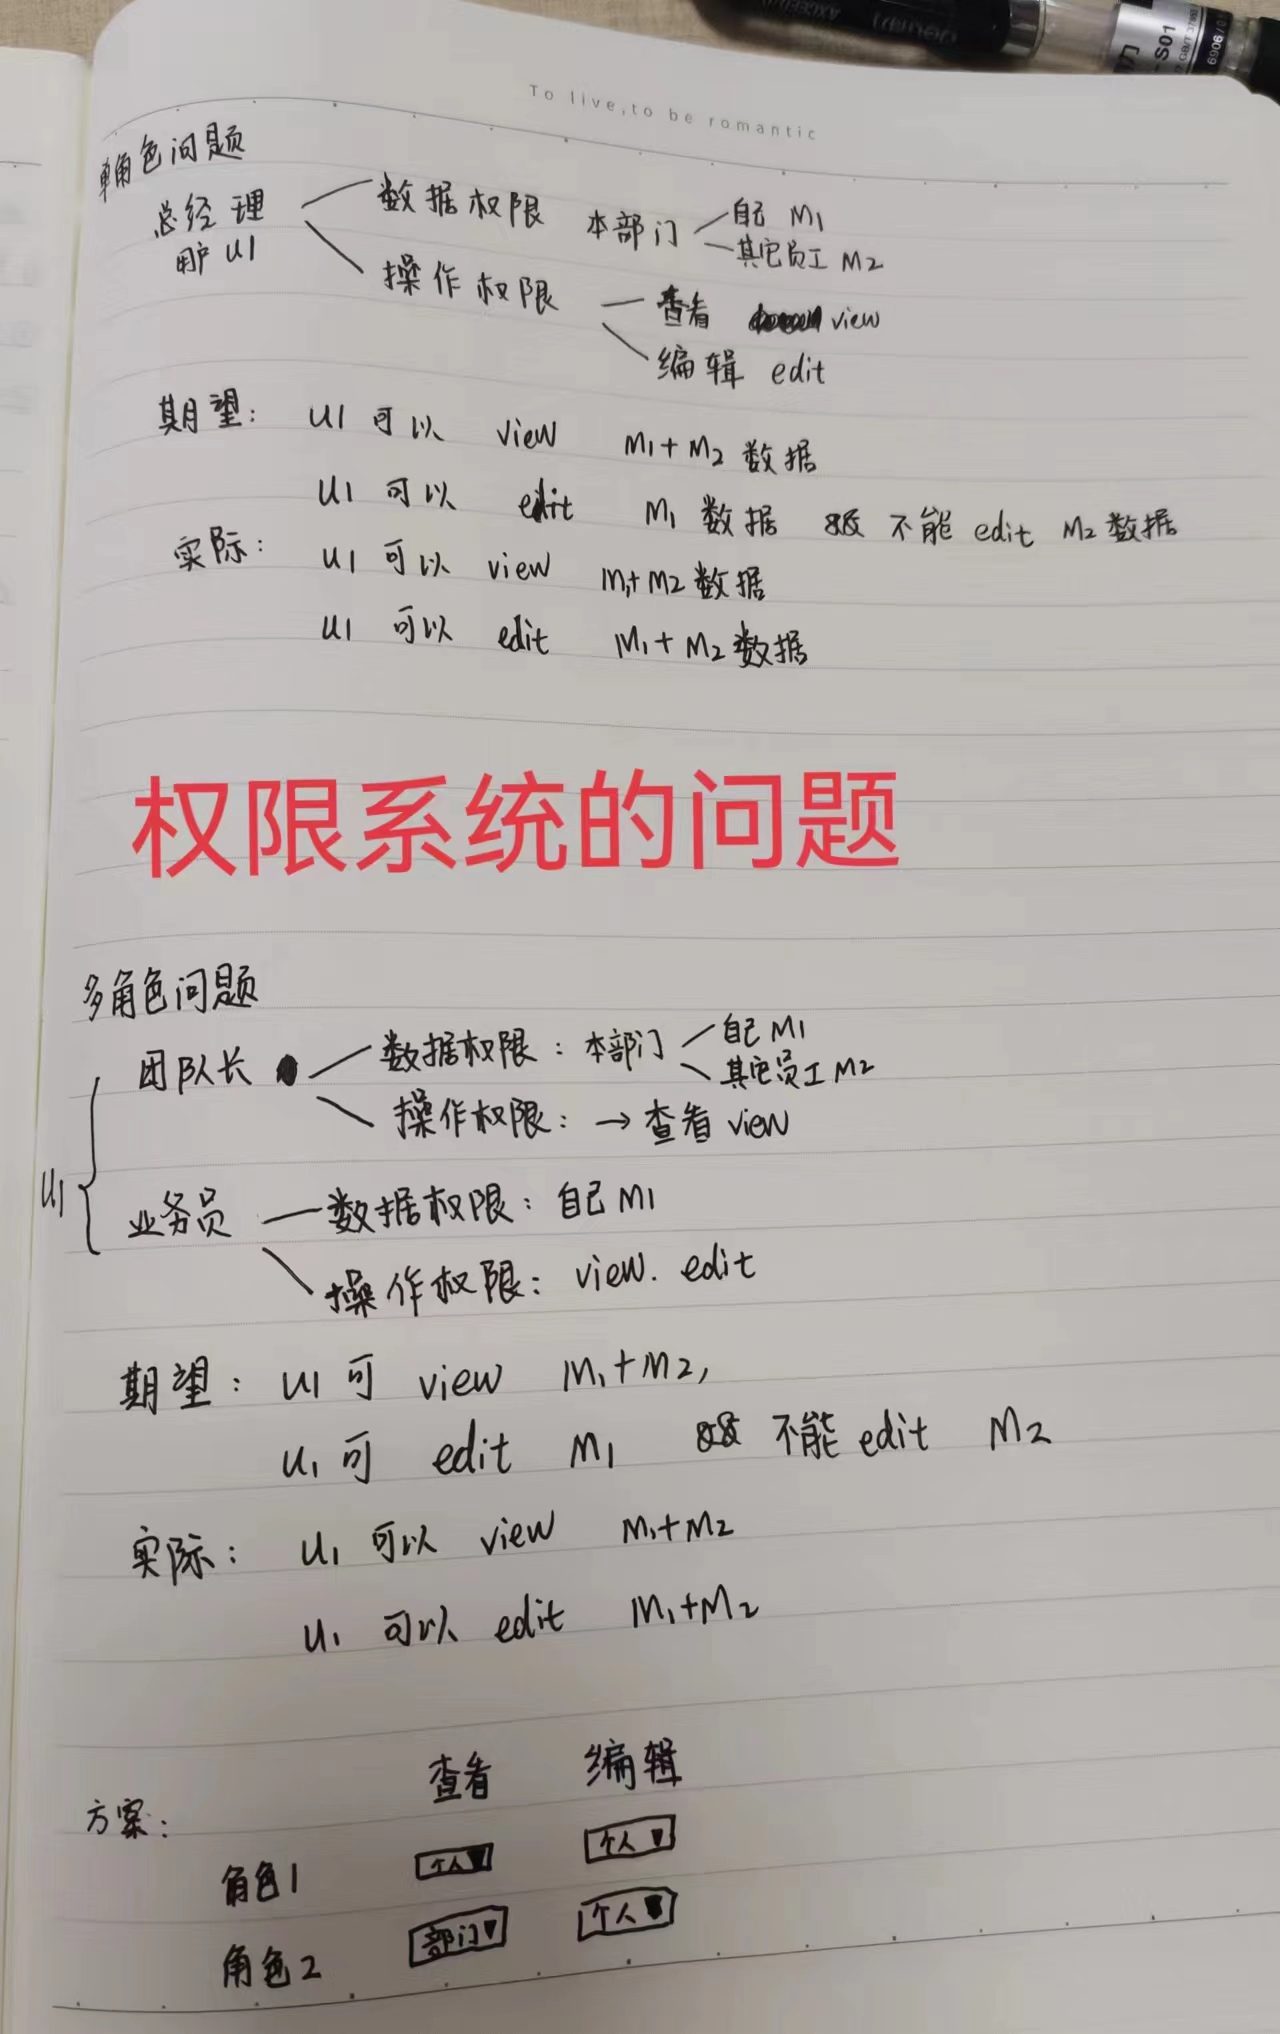 AXCEED
S01
GB/T 37853
6906
To live,to be romantic
单角色问题
总经理 数据权限 本部门 自己 M1
用户 U1 其它员工 M2
操作权限 查看 view
编辑 edit
期望: U1 可以 view M1+M2 数据
U1 可以 edit M1 数据 && 不能 edit M2 数据
实际: U1 可以 view M1+M2 数据
U1 可以 edit M1+M2 数据
权限系统的问题
多角色问题
团队长 数据权限: 本部门 自己 M1
其它员工 M2
操作权限: → 查看 view
U1
业务员 数据权限: 自己 M1
操作权限: view. edit
期望: U1 可 view M1+M2,
U1 可 edit M1 && 不能 edit M2
实际: U1 可以 view M1+M2
U1 可以 edit M1+M2
查看 编辑
方案:
角色1 个人▼ 个人▼
角色2 部门▼ 个人▼